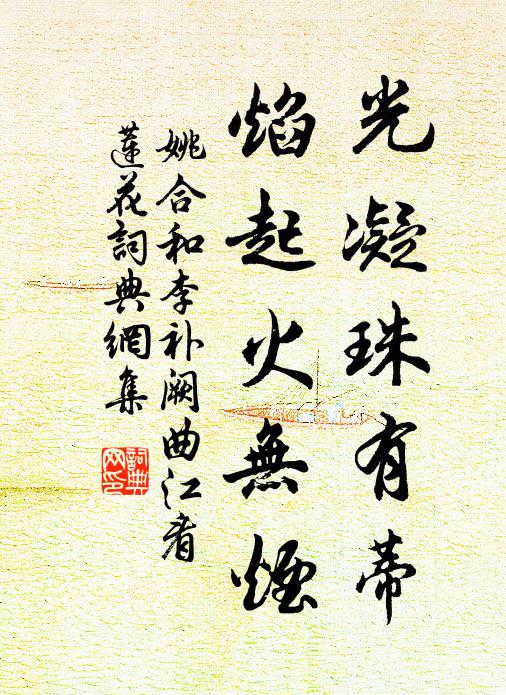 光凝珠有蒂
焰起火無煙
姚合和李补阙曲江看
蓮花詞典網集
詞典
网印